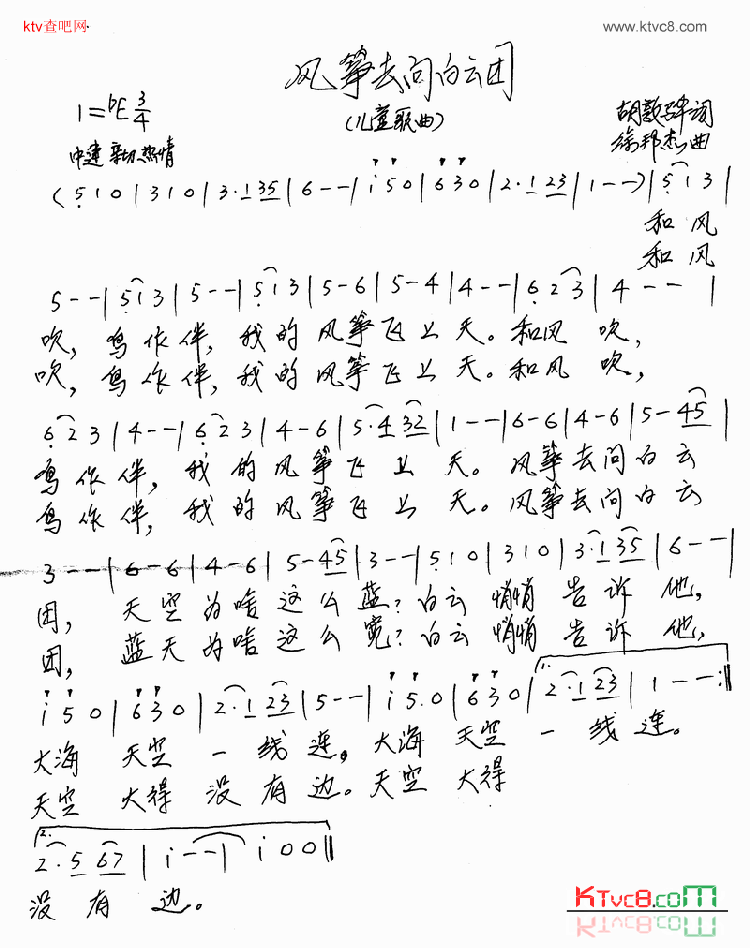 ktv查吧网
www.ktvc8.com
风筝去问白云团
1=bE 3/4
(儿童歌曲)
胡敦骅词
徐邦杰曲
中速 亲切、热情
(5 1 0 | 3 1 0 | 3·1 3 5 | 6 - - | i 5 0 | 6 3 0 | 2·1 2 3 | 1 - - ) | 5 1 3 |
和 风
和 风
5 - - | 5 1 3 | 5 - - | 5 1 3 | 5 - 6 | 5 - 4 | 4 - - | 6 2 3 | 4 - - |
吹, 鸟作伴, 我的风筝飞上天。和风吹,
吹, 鸟作伴, 我的风筝飞上天。和风吹,
6 2 3 | 4 - - | 6 2 3 | 4 - 6 | 5·4 3 2 | 1 - - | 6 - 6 | 4 - 6 | 5 - 4 5 |
鸟作伴, 我的风筝飞上天。风筝去问白云
鸟作伴, 我的风筝飞上天。风筝去问白云
3 - - | 6 - 6 | 4 - 6 | 5 - 4 5 | 3 - - | 5 1 0 | 3 1 0 | 3·1 3 5 | 6 - - |
团, 天空为啥这么蓝?白云悄悄告诉他,
团, 蓝天为啥这么宽?白云悄悄告诉他,
i 5 0 | 6 3 0 | 2·1 2 3 | 5 - - | i 5 0 | 6 3 0 | 1. 2·1 2 3 | 1 - - :||
大海天空一线连。大海天空一线连。
天空大得没有边。天空大得
2. 2·5 6 7 | i - - | i 0 0 ||
没有边。
KTvc8.com